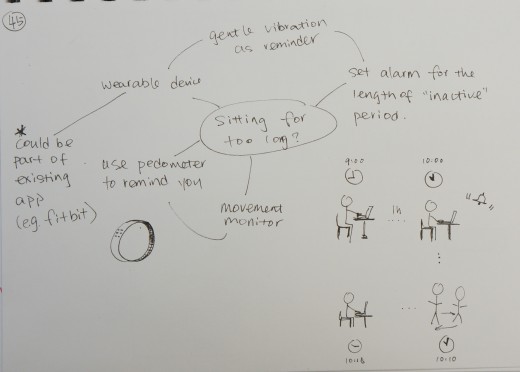 45
gentle vibration
as reminder
wearable device
set alarm for the
length of "inactive"
period.
Sitting for
too long?
*
Could be
part of
existing
app
(e.g. fitbit)
use pedometer
to remind you
movement
monitor
9:00
10:00
1h
...
...
...
10:10